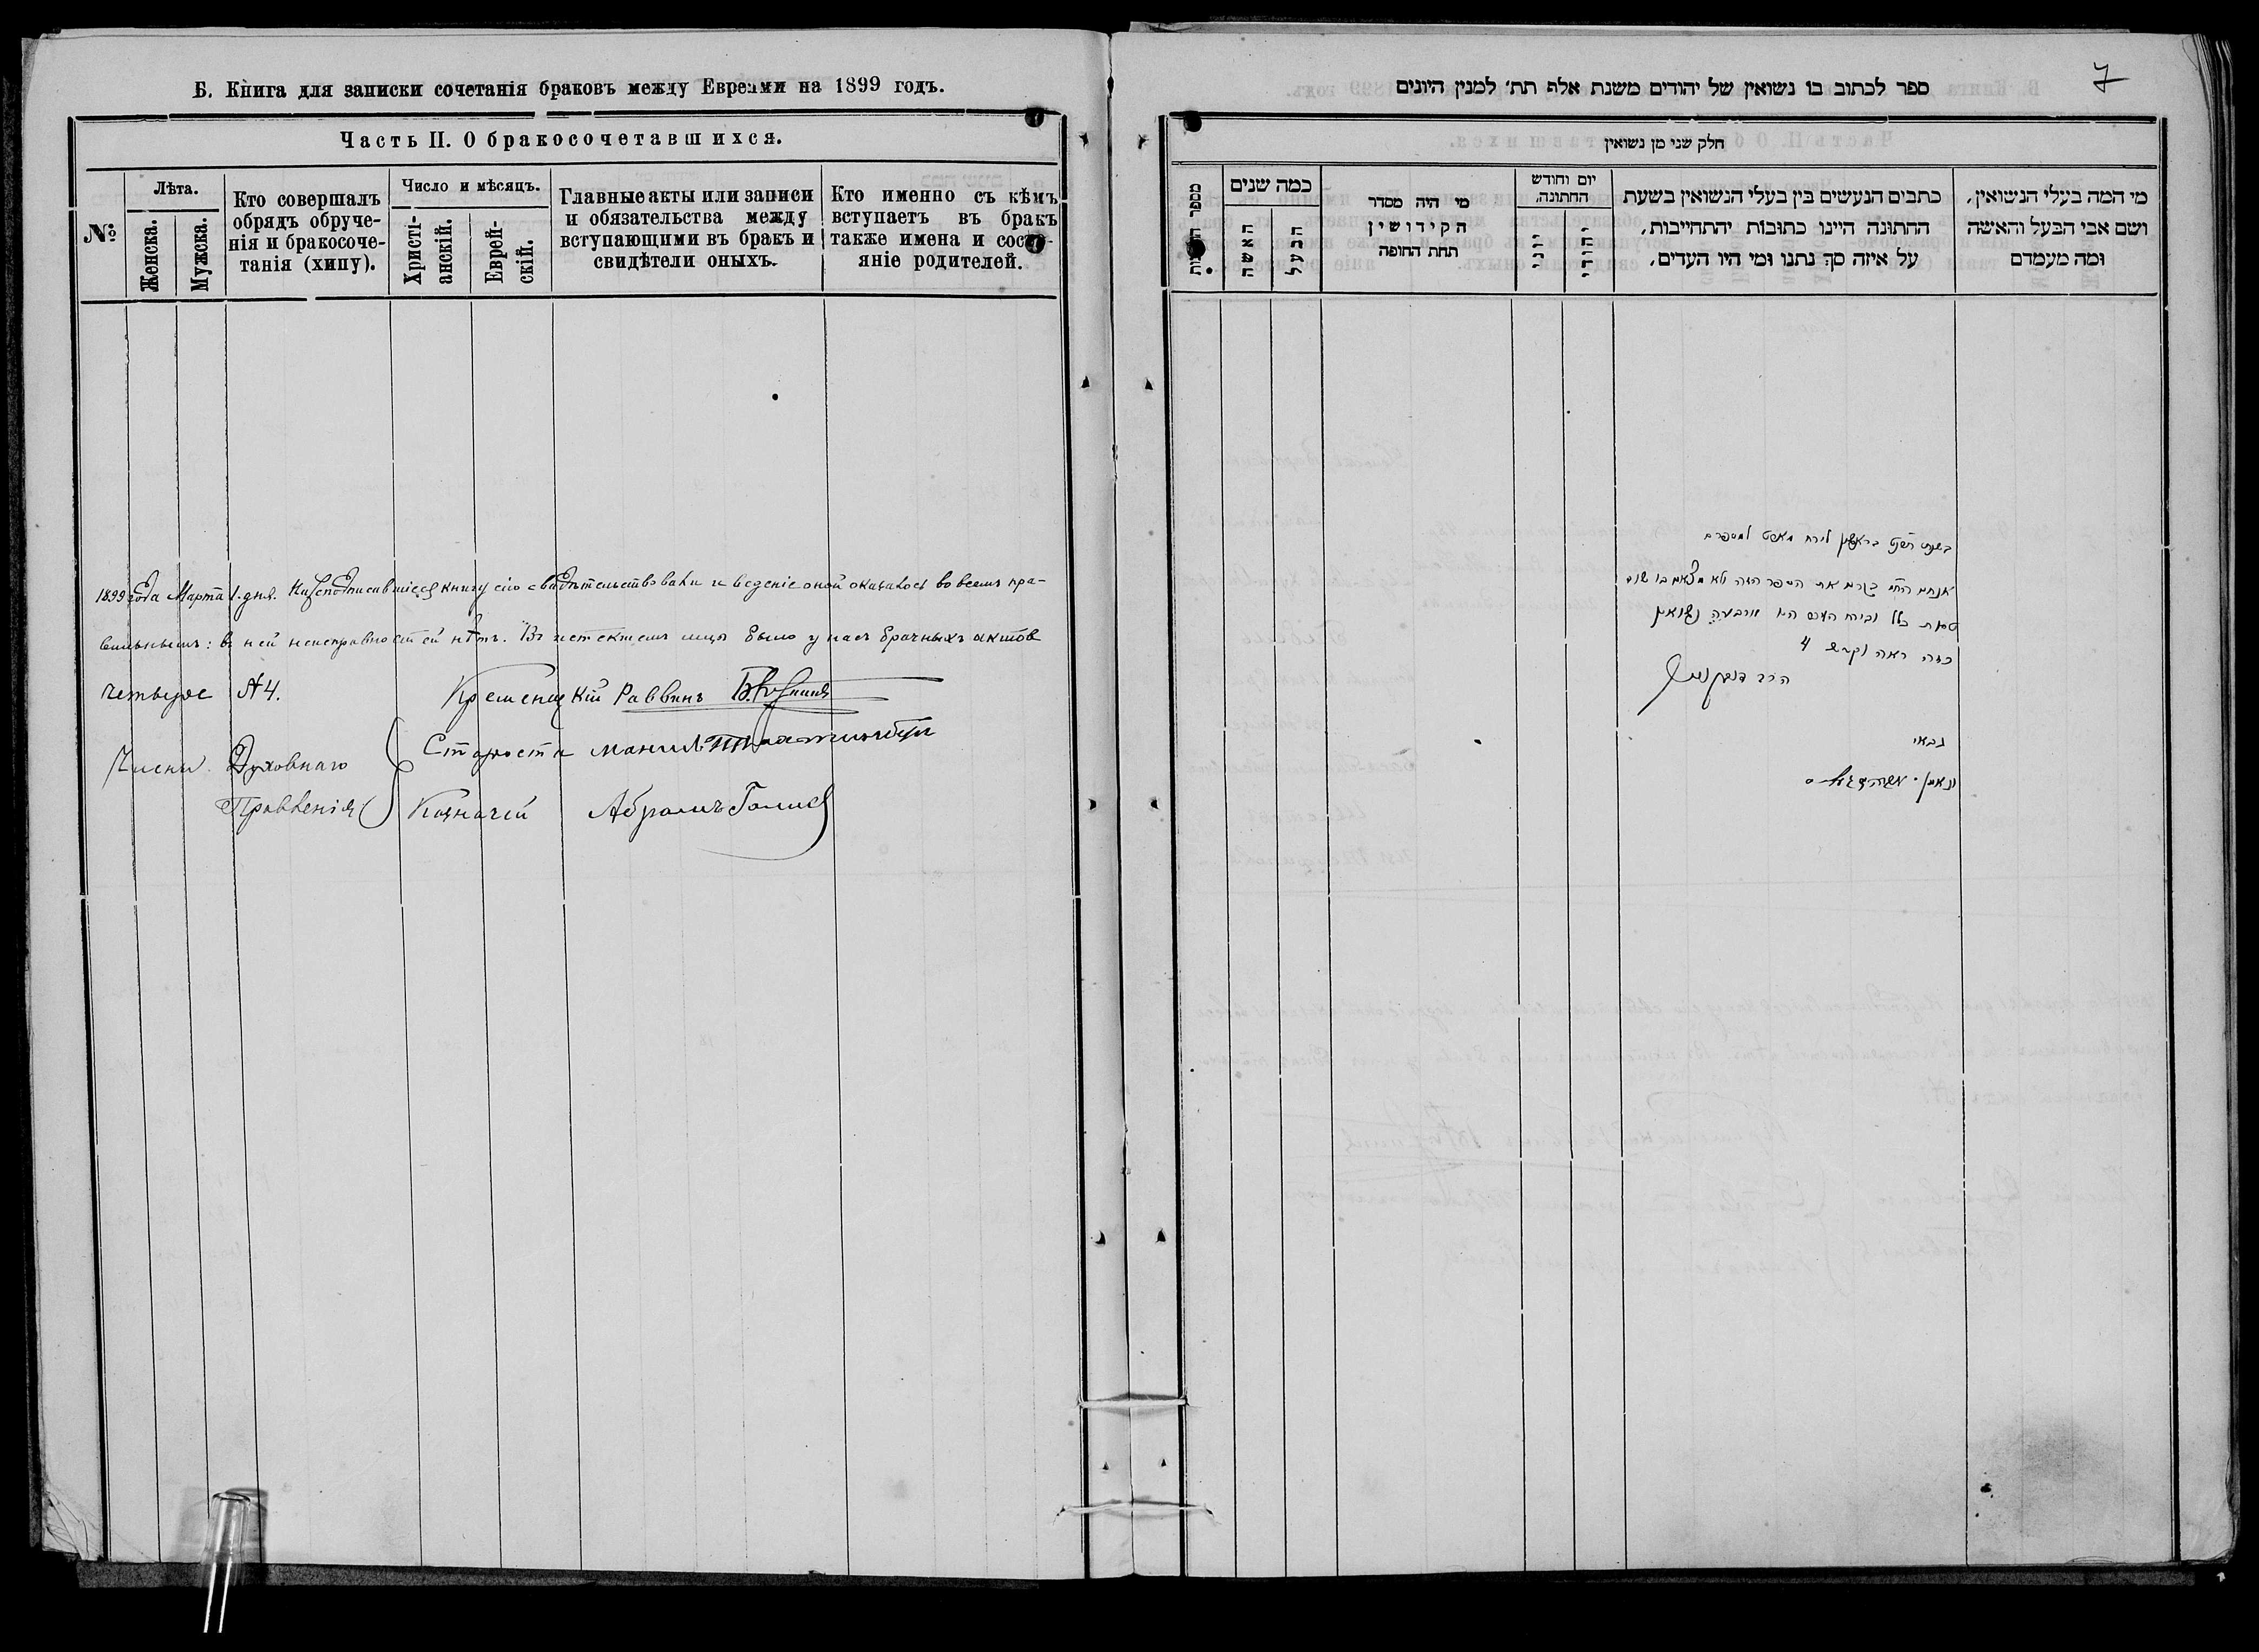 Б. Книга для записки сочетанія браковъ между Евреями на 1899 годъ.
Часть II. О бракосочетавшихся.
№
Лѣта.
Женска.
Мужска.
Кто совершалъ
обрядъ обруче-
нія и бракосоче-
танія (хипу).
Число и мѣсяцъ.
Христі-
анскій.
Еврей-
скій.
Главные акты или записи
и обязательства между
вступающими въ бракъ и
свидѣтели оныхъ.
Кто именно съ кѣмъ
вступаетъ въ бракъ
также имена и состо-
яніе родителей.
1899 года Марта 1. дня. Нижеподписавшіеся книгу сію свидѣтельствовали и веденіе оной оказалось во всемъ пра-
вильнымъ: в ней неисправностей нѣтъ. Въ истекшемъ мцѣ было у насъ брачныхъ актов
четыре №4.
Кременецкій Раввинъ
Члены Духовнаго
Правленія
Староста
Казначей Абрамъ
7
ספר לכתוב בו נשואין של יהודים משנת אלף תת׳ למנין היונים
חלק שני מן נשואין
מספר
כמה שנים
האשה
הבעל
מי היה מסדר
הקידושין
תחת החופה
יום וחודש
החתונה.
יווני
יהודי
כתבים הנעשים בין בעלי הנשואין בשעת
החתונה היינו כתובות והתחייבות,
על איזה סך נתנו ומי היו העדים,
מי המה בעלי הנשואין,
ושם אבי הבעל והאשה
ומה מעמדם
אנחנו הח״מ בקרנו את הספר הזה ולא מצאנו בו שום
טעות כלל ובירח העבר היו ארבעה נשואין
4
הרב
גבאי
נאמן